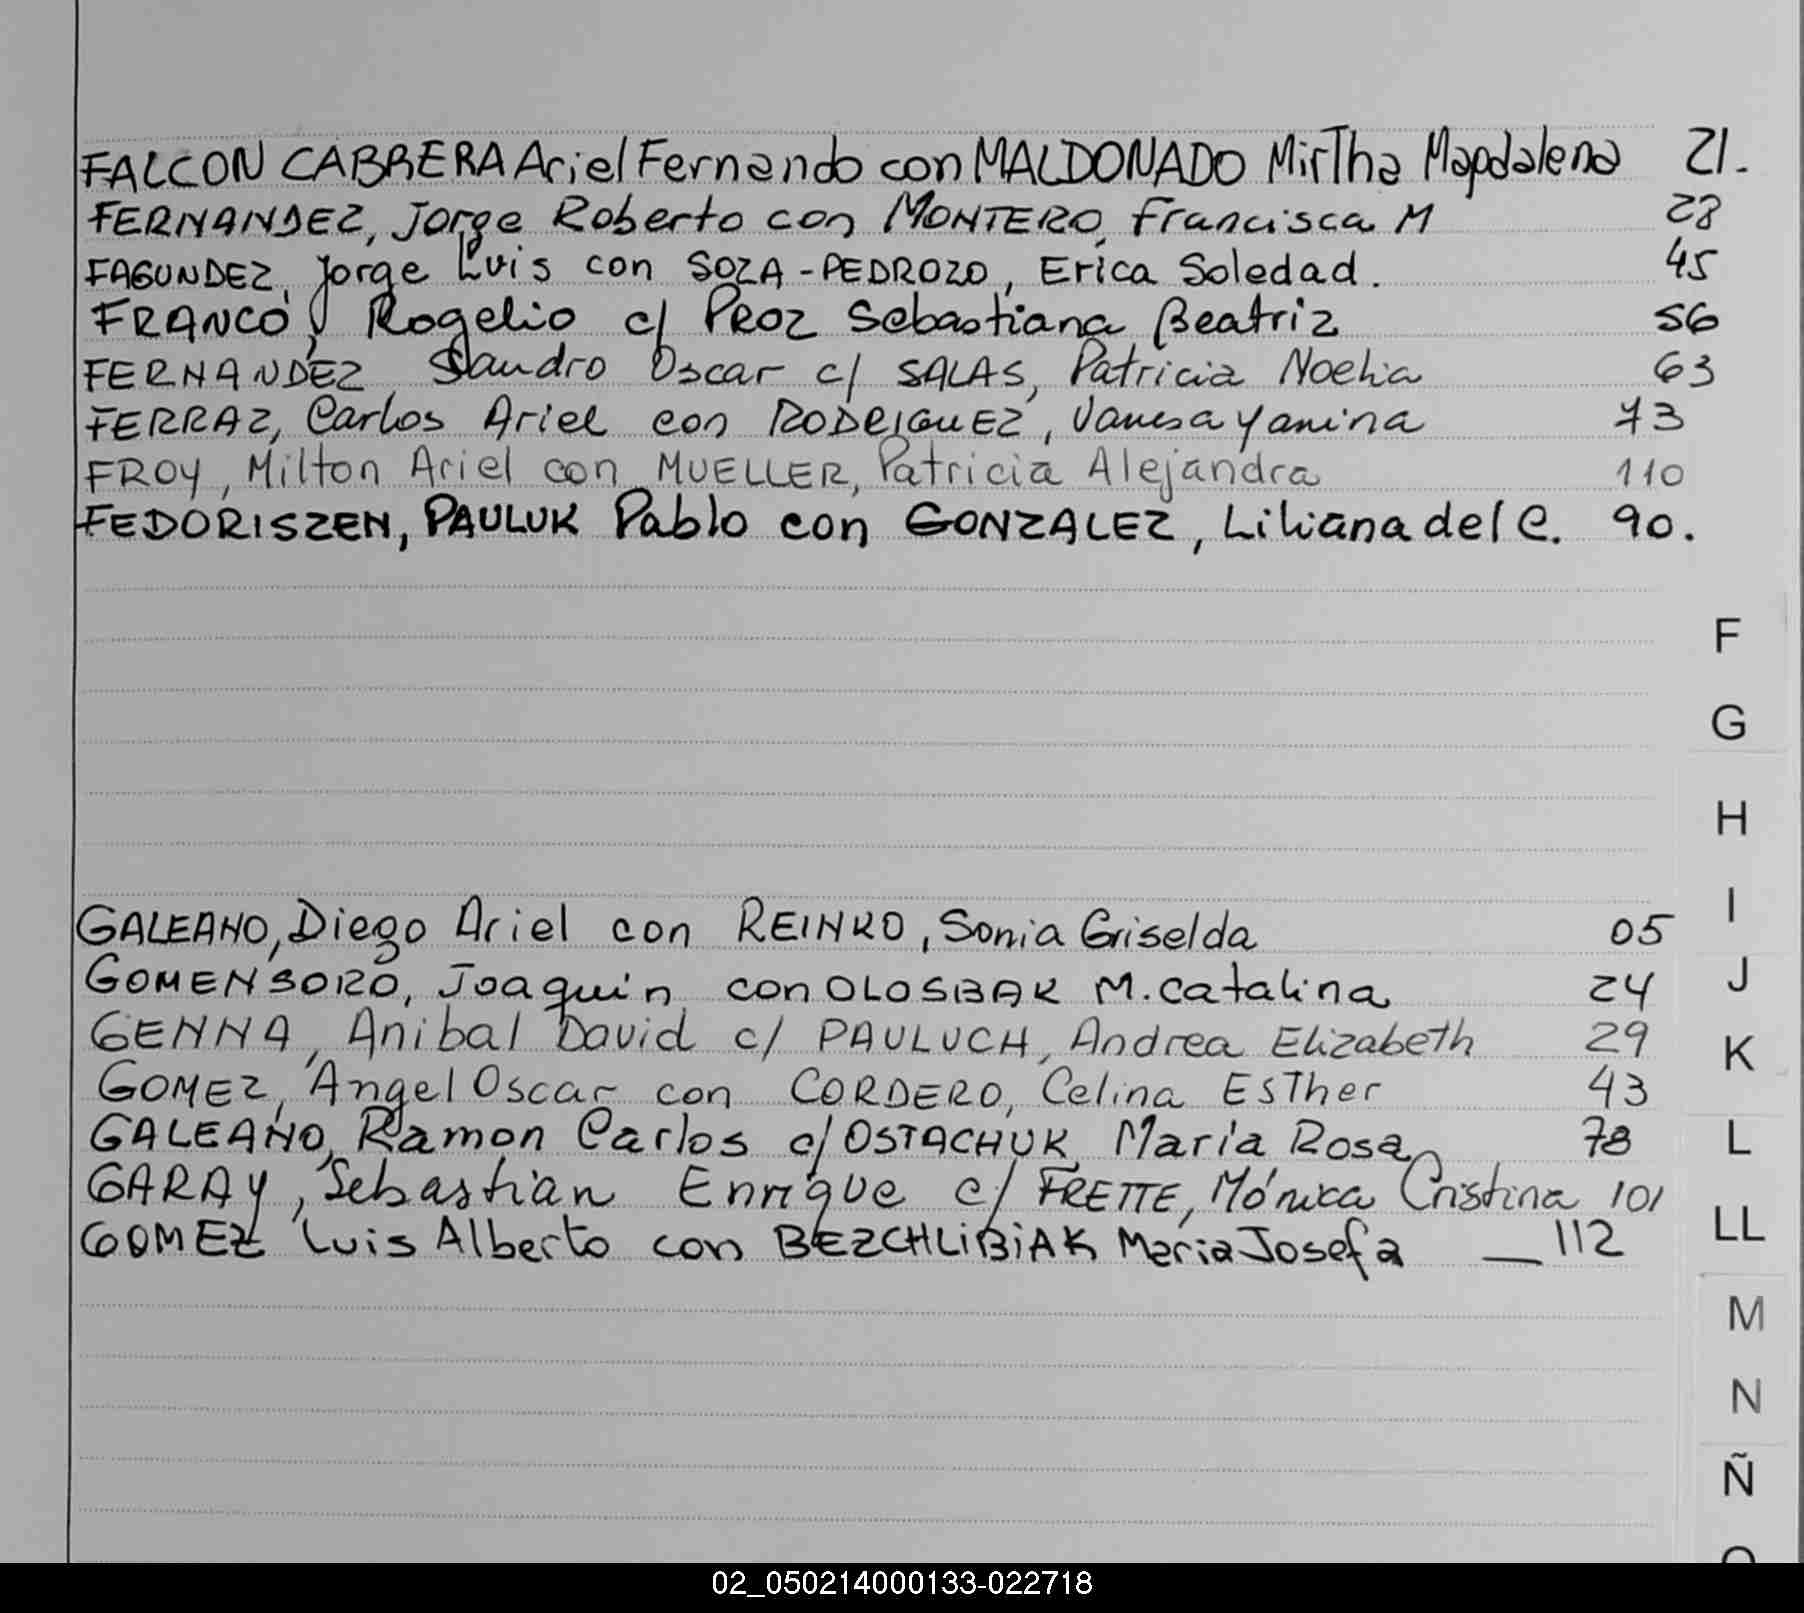 FALCON CABRERA Ariel Fernando con MALDONADO Mirtha Magdalena 21.
FERNANDEZ, Jorge Roberto con MONTERO, Francisca M 28
FAGUNDEZ, Jorge Luis con SOZA-PEDROZO, Erica Soledad. 45
FRANCO, Rogelio c/ PROZ Sebastiana Beatriz 56
FERNANDEZ Sandro Oscar c/ SALAS, Patricia Noelia 63
FERRAZ, Carlos Ariel con RODRIGUEZ, Vanesa Yanina 73
FROY, Milton Ariel con MUELLER, Patricia Alejandra 110
FEDORISZEN, PAULUK Pablo con GONZALEZ, Liliana del C. 90.
F
G
H
I
GALEANO, Diego Ariel con REINKO, Sonia Griselda 05
J
GOMENSORO, Joaquin con OLOSBAK M. Catalina 24
GENNA, Anibal David c/ PAULUCH, Andrea Elizabeth 29
K
GOMEZ, Angel Oscar con CORDERO, Celina Esther 43
GALEANO, Ramon Carlos c/ OSTACHUK Maria Rosa 78
L
GARAY, Sebastian Enrique c/ FRETTE, Mónica Cristina 101
GOMEZ Luis Alberto con BEZCHLIBIAK Maria Josefa — 112
LL
M
N
Ñ
O
02_050214000133-022718